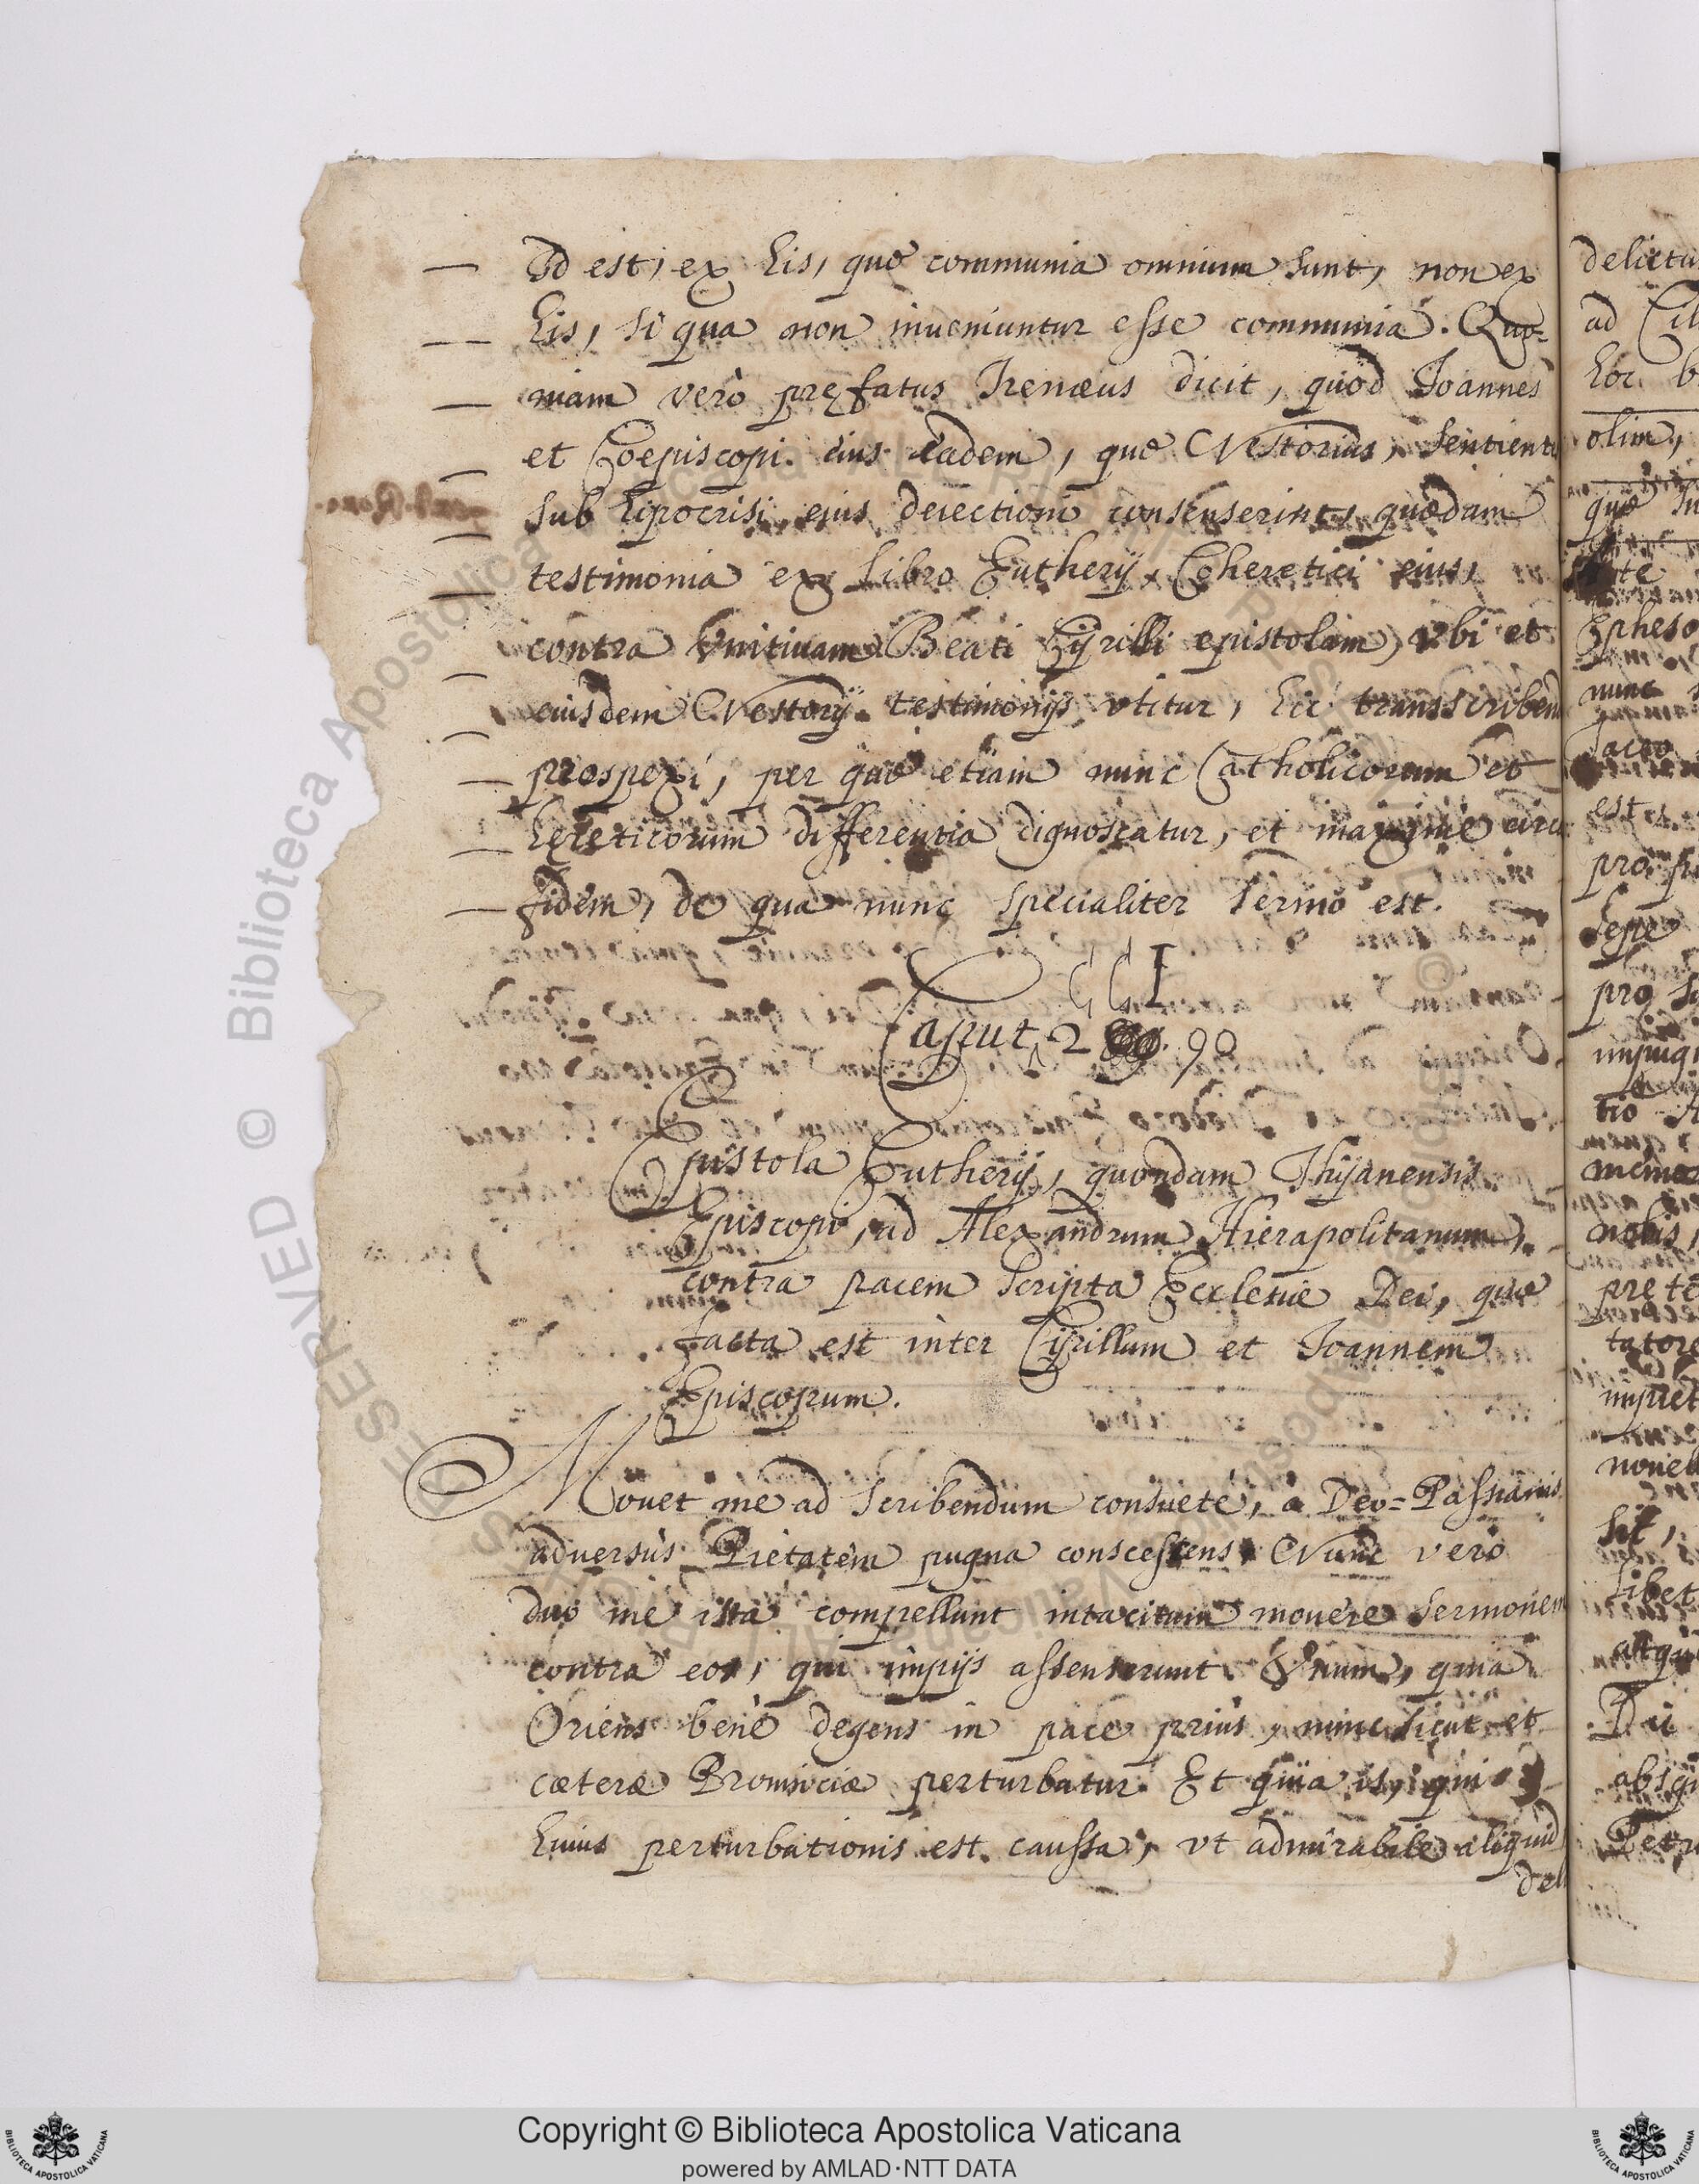 Id est, ex his, que communia omnium sunt, non ex
his, si qua non inueniuntur esse communia. Quo-
niam verò pręfatus Irenæus dicit, quòd Joannes
et Coepiscopi eius eadem, que Nestorius, sentient
sub hipocrisi eius deiectioni consenserint, quædam
testimonia ex libro Eutherij Coheretici eius,
contra Vnitiuam Beati Cÿrilli epistolam, vbi et
eiusdem Nestorij testimonijs vtitur, hic transscriben
prospexi, per que etiam nunc Catholicorum et
hereticorum differentia dignoscatur, et maxime circa
fidem, de qua nunc specialiter sermo est.
CCI
Caput 2 90
Epistola Eutherij, quondam Thÿanensis
Episcopi, ad Alexandrum Hierapolitanum,
contra pacem scripta Ecclesie Dei, que
facta est inter Cÿrillum et Joannem
Episcopum.
Mouet me ad scribendum consuetè, a Deo=Passianis
aduersùs Pietatem pugna conscessens. Nunc verò
duo me ista compellunt intacitum mouere sermonem
contra eos, qui impijs assenserunt. Vnum, quia
Oriens benè degens in pace priùs, nunc sicut et
cæteræ Prouinciæ perturbatur. Et quia is, qui
huius perturbationis est caussa, vt admirabile aliquid
del
delictu
ad Cil
hoc b
olim,
que su
te
Epheso
nunc
est
pro
sepe
pro su
impug
tio
nobis,
prete
tatore
impiet
nouel
sit,
libet
atqu
Dei
absqu
Petr
© Biblioteca Apostolica Vaticana
RESERVED
Copyright © Biblioteca Apostolica Vaticana
powered by AMLAD·NTT DATA
BIBLIOTECA APOSTOLICA VATICANA
BIBLIOTECA APOSTOLICA VATICANA